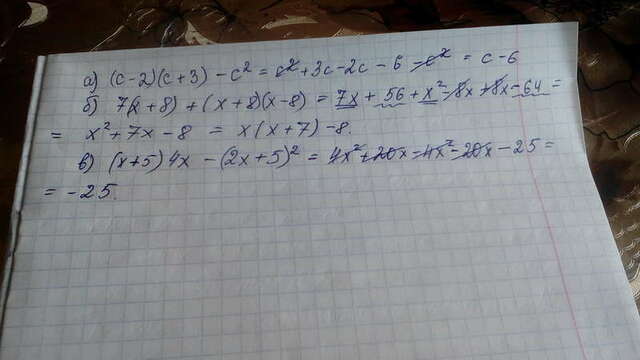 а) (c-2)(c+3) - c² = c² + 3c - 2c - 6 - c² = c - 6
б) 7(x+8) + (x+8)(x-8) = 7x + 56 + x² - 8x + 8x - 64 =
= x² + 7x - 8 = x(x+7) - 8.
в) (x+5)4x - (2x+5)² = 4x² + 20x - 4x² - 20x - 25 =
= -25.